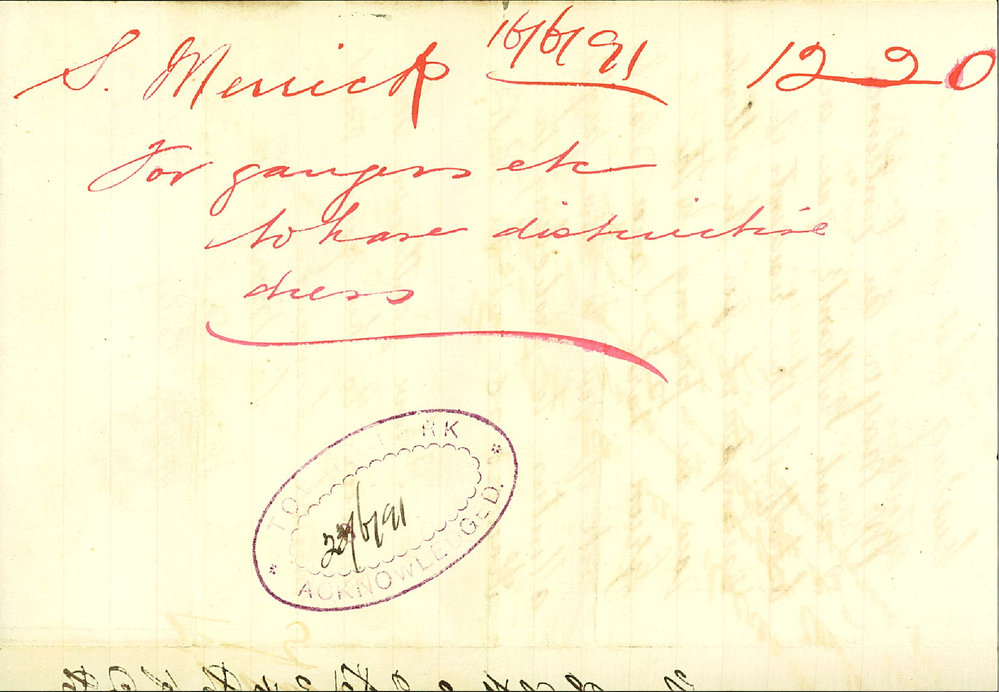 S. Merrick 16/6/91 1220
For gaugers etc
to have distinctive
dress
TO RK
/6/91
ACKNOWLEDGED.